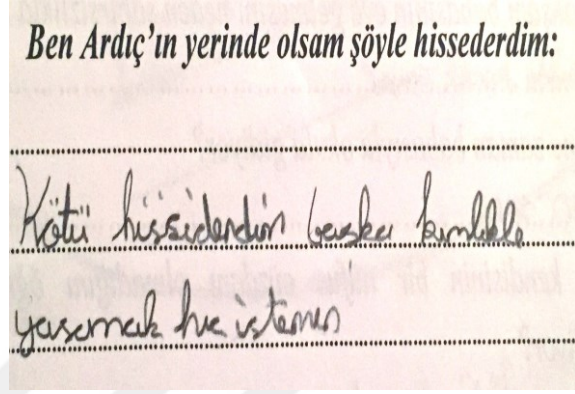 Ben Ardıç'ın yerinde olsam şöyle hissederdim:
Kötü hissederdim başka kimlikle
yaşamak hiç istemem